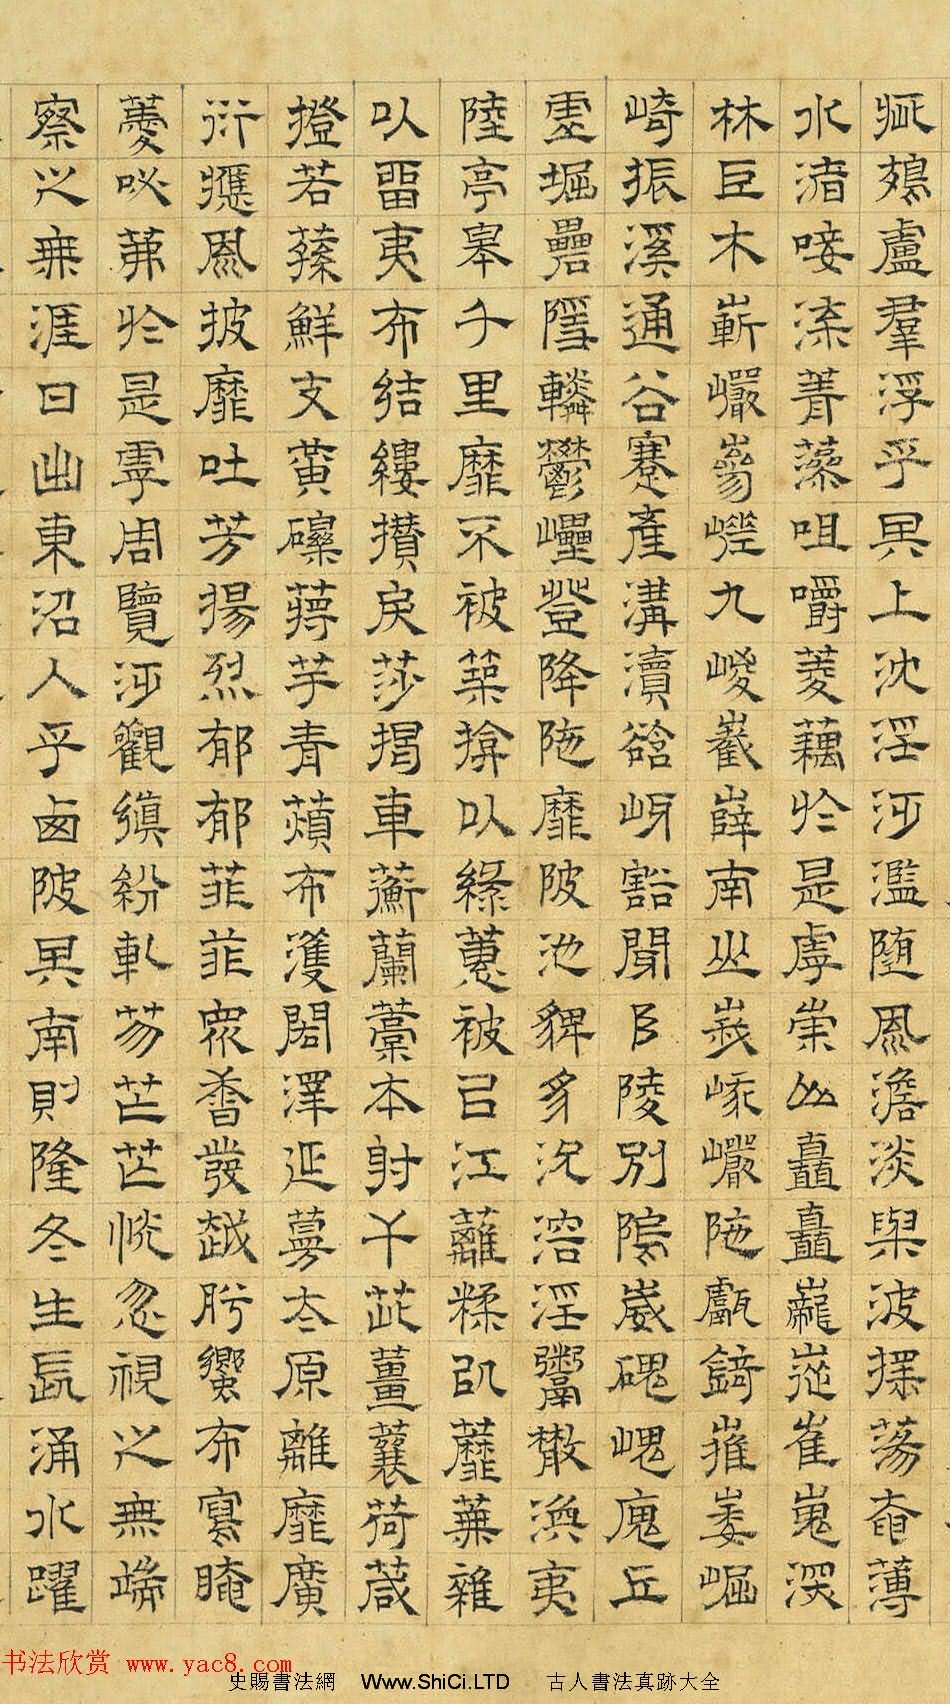 疵鵁盧羣浮乎其上沈淫汎濫随風澹淡與波揺蕩奄薄
水渚唼渫菁藻咀嚼菱藕於是虖崇山矗矗巃嵸崔嵬深
林巨木嶄巖嵾嵯九嵕嶻嶭南山峩峨巖陁甗錡嶊崣崛
崎振溪通谷蹇產溝瀆谽岈豁閜阜陵別隝崴磈嵬廆丘
虛堀礨隱轔鬱㠥登降陁靡陂池貏豸沇溶淫鬻散渙夷
陸亭皋千里靡不被築揜以綠蕙被以江蘺糅以蘪蕪雜
以留夷布結縷攢戾莎揭車蘅蘭稾本射干茈薑蘘荷葴
橙若蓀鮮支黃礫蔣芧青薠布濩閎澤延蔓太原離靡廣
衍應風披靡吐芳揚烈郁郁菲菲衆香發越肸蠁布寫晻
薆咇茀於是虖周覽汎觀縝紛軋芴芒芒恍忽視之無端
察之無涯日出東沼入乎西陂其南則隆冬生長涌水躍
书法欣赏 www.yac8.com
史賜書法網 Www.ShiCi.LTD 古人書法真跡大全